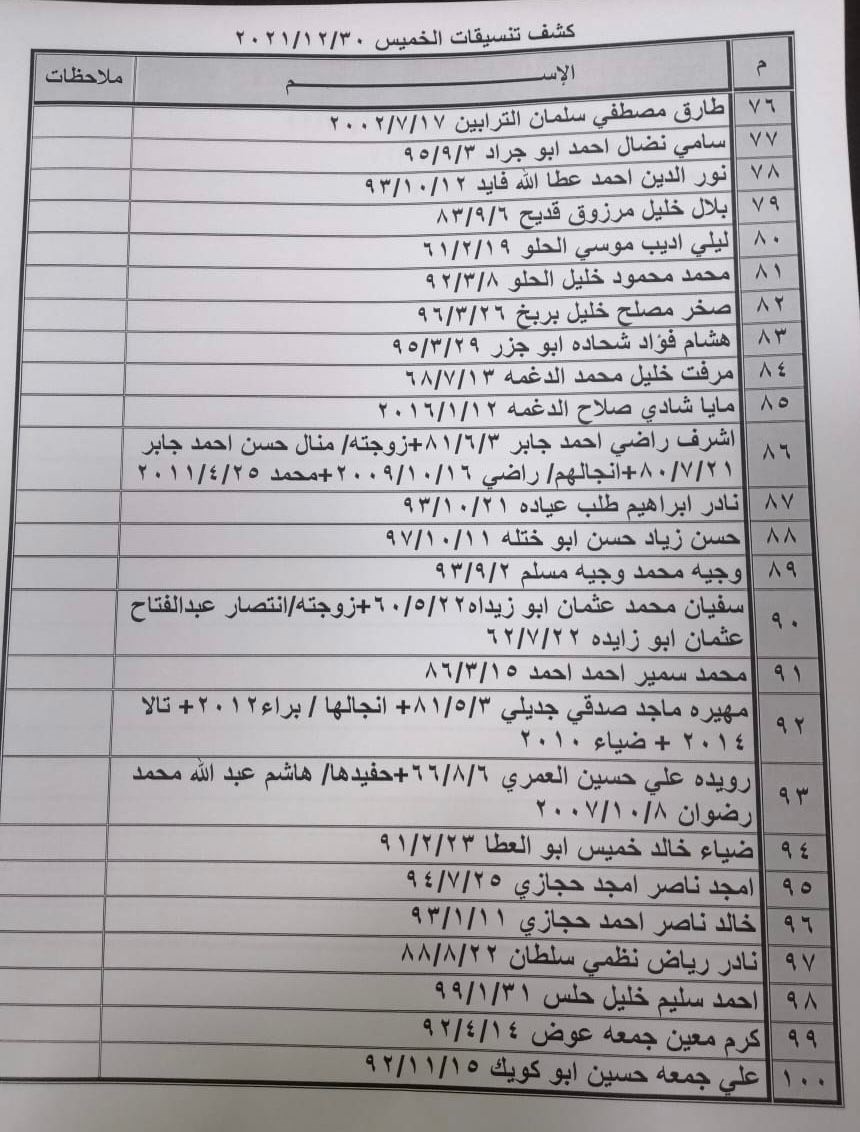 كشف تنسيقات الخميس ٢٠٢١/١٢/٣٠
م الإســـــــــم ملاحظات
٧٦ طارق مصطفي سلمان الترابين ٢٠٠٢/٧/١٧
٧٧ سامي نضال احمد ابو جراد ٩٥/٩/٣
٧٨ نور الدين احمد عطا الله فايد ٩٣/١٠/١٢
٧٩ بلال خليل مرزوق قديح ٨٣/٩/٦
٨٠ ليلي اديب موسي الحلو ٦١/٢/١٩
٨١ محمد محمود خليل الحلو ٩٢/٣/٨
٨٢ صخر مصلح خليل بربخ ٩٦/٣/٢٦
٨٣ هشام فؤاد شحاده ابو جزر ٩٥/٣/٢٩
٨٤ مرفت خليل محمد الدغمه ٦٨/٧/١٣
٨٥ مايا شادي صلاح الدغمه ٢٠١٦/١/١٢
٨٦ اشرف راضي احمد جابر ٨١/٦/٣+زوجته/ منال حسن احمد جابر
٨٠/٧/٢١+انجالهم/ راضي ٢٠٠٩/١٠/١٦+محمد ٢٠١١/٤/٢٥
٨٧ نادر ابراهيم طلب عياده ٩٣/١٠/٢١
٨٨ حسن زياد حسن ابو ختله ٩٧/١٠/١١
٨٩ وجيه محمد وجيه مسلم ٩٣/٩/٢
٩٠ سفيان محمد عثمان ابو زيداه٦٠/٥/٢٢+زوجته/انتصار عبدالفتاح
عثمان ابو زايده ٦٢/٧/٢٢
٩١ محمد سمير احمد احمد ٨٦/٣/١٥
٩٢ مهيره ماجد صدقي جديلي ٨١/٥/٣+ انجالها / براء٢٠١٢+ تالا
٢٠١٤ + ضياء ٢٠١٠
٩٣ رويده علي حسين العمري ٦٦/٨/٦+حفيدها/ هاشم عبد الله محمد
رضوان ٢٠٠٧/١٠/٨
٩٤ ضياء خالد خميس ابو العطا ٩١/٢/٢٣
٩٥ امجد ناصر امجد حجازي ٩٤/٧/٢٥
٩٦ خالد ناصر احمد حجازي ٩٣/١/١١
٩٧ نادر رياض نظمي سلطان ٨٨/٨/٢٢
٩٨ احمد سليم خليل حلس ٩٩/١/٣١
٩٩ كرم معين جمعه عوض ٩٢/٤/١٤
١٠٠ علي جمعه حسين ابو كويك ٩٢/١١/١٥